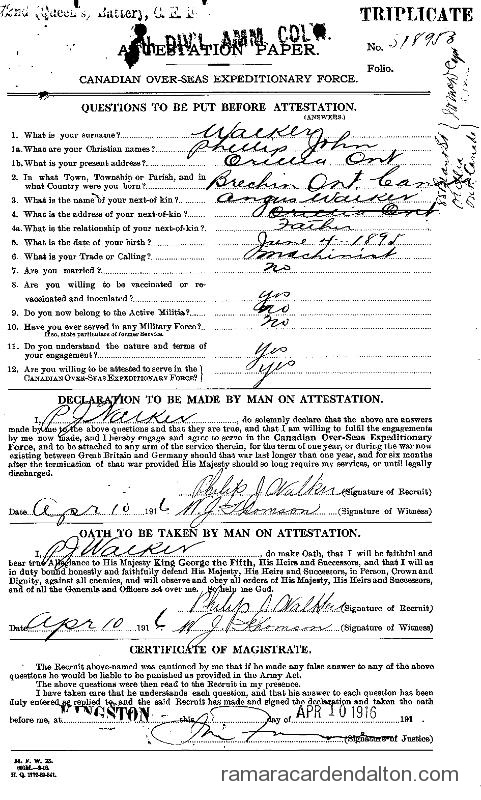 72nd (Queen's) Battery, C. E. F.
DIV'L AMM. COL'N.
TRIPLICATE
ATTESTATION PAPER.
No. 318953
Folio.
CANADIAN OVER-SEAS EXPEDITIONARY FORCE.
QUESTIONS TO BE PUT BEFORE ATTESTATION.
(ANSWERS.)
1. What is your surname? Walker
1a. What are your Christian names? Phillip John
1b. What is your present address? Orillia Ont
2. In what Town, Township or Parish, and in
what Country were you born? Brechin Ont. Can
3. What is the name of your next-of-kin? Angus Walker
4. What is the address of your next-of-kin? Orillia Ont
4a. What is the relationship of your next-of-kin? Father
5. What is the date of your birth? June 4 - 1895
6. What is your Trade or Calling? Machinist
7. Are you married? no
8. Are you willing to be vaccinated or re-
vaccinated and inoculated? yes
9. Do you now belong to the Active Militia? no
10. Have you ever served in any Military Force? no
If so, state particulars of former Service.
11. Do you understand the nature and terms of
your engagement? Yes
12. Are you willing to be attested to serve in the
CANADIAN OVER-SEAS EXPEDITIONARY FORCE? yes
DECLARATION TO BE MADE BY MAN ON ATTESTATION.
I, P J Walker, do solemnly declare that the above are answers
made by me to the above questions and that they are true, and that I am willing to fulfil the engagements
by me now made, and I hereby engage and agree to serve in the Canadian Over-Seas Expeditionary
Force, and to be attached to any arm of the service therein, for the term of one year, or during the war now
existing between Great Britain and Germany should that war last longer than one year, and for six months
after the termination of that war provided His Majesty should so long require my services, or until legally
discharged.
Philip J Walker (Signature of Recruit)
Date Apr 10 1916 W. J. Thomson (Signature of Witness)
OATH TO BE TAKEN BY MAN ON ATTESTATION.
I, P J Walker, do make Oath, that I will be faithful and
bear true Allegiance to His Majesty King George the Fifth, His Heirs and Successors, and that I will as
in duty bound honestly and faithfully defend His Majesty, His Heirs and Successors, in Person, Crown and
Dignity, against all enemies, and will observe and obey all orders of His Majesty, His Heirs and Successors,
and of all the Generals and Officers set over me. So help me God.
Philip J Walker (Signature of Recruit)
Date Apr 10 1916 W J Thomson (Signature of Witness)
CERTIFICATE OF MAGISTRATE.
The Recruit above-named was cautioned by me that if he made any false answer to any of the above
questions he would be liable to be punished as provided in the Army Act.
The above questions were then read to the Recruit in my presence.
I have taken care that he understands each question, and that his answer to each question has been
duly entered as replied to, and the said Recruit has made and signed the declaration and taken the oath
before me, at KINGSTON this day of APR 10 1916 191
(Signature of Justice)
M. F. W. 23.
H. Q. 1772-39-841.
ramaracardendalton.com